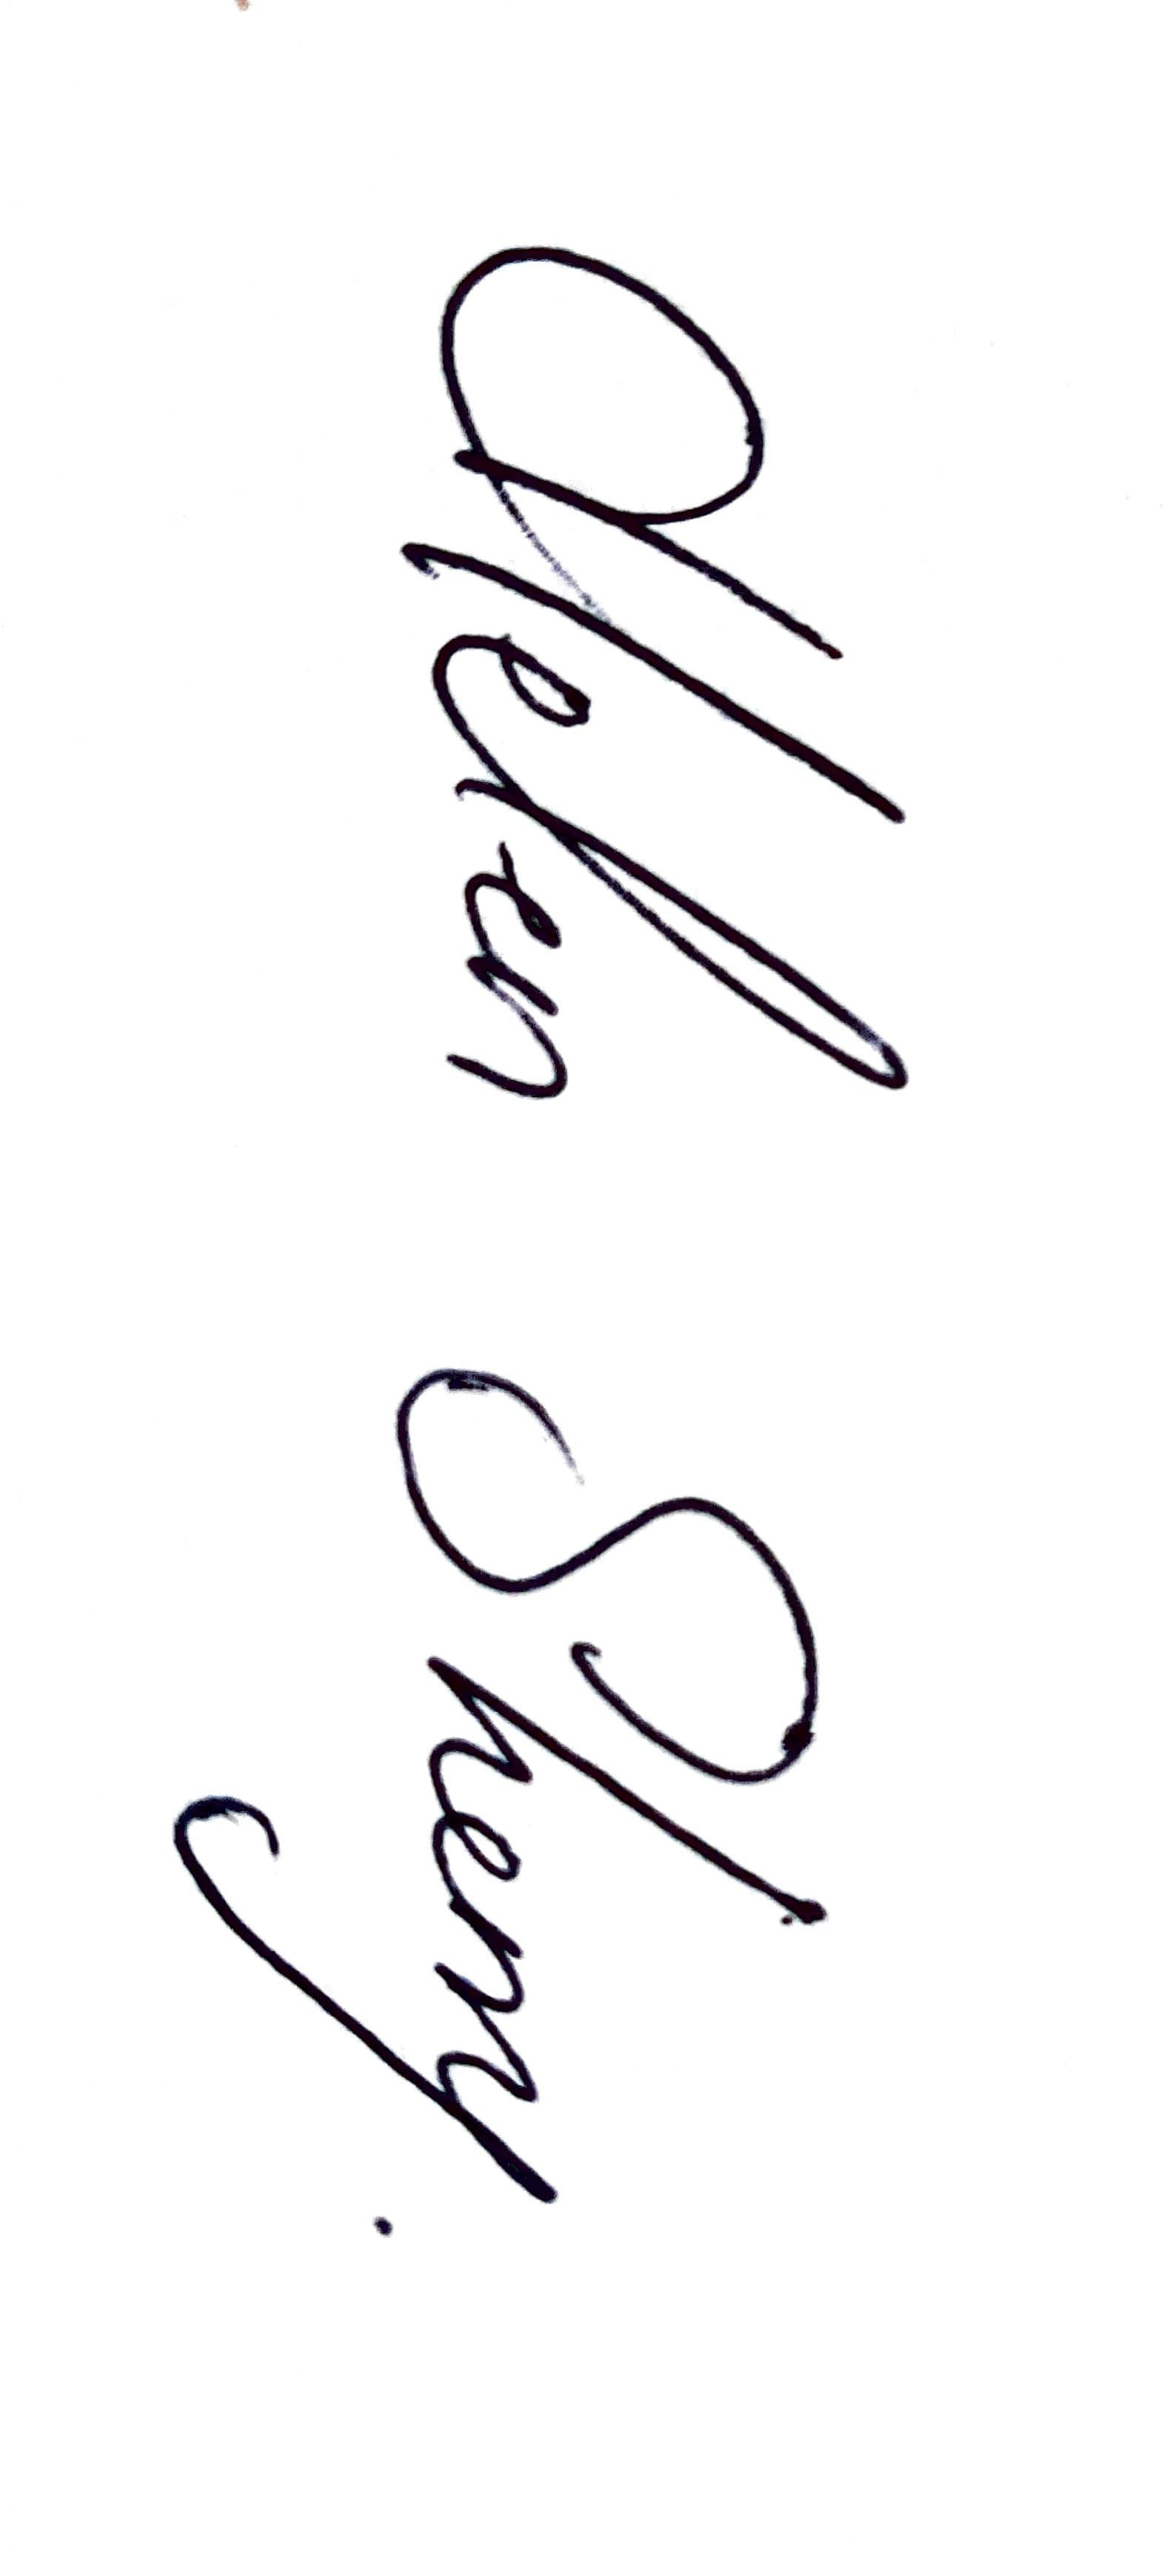 Helen Sheny.